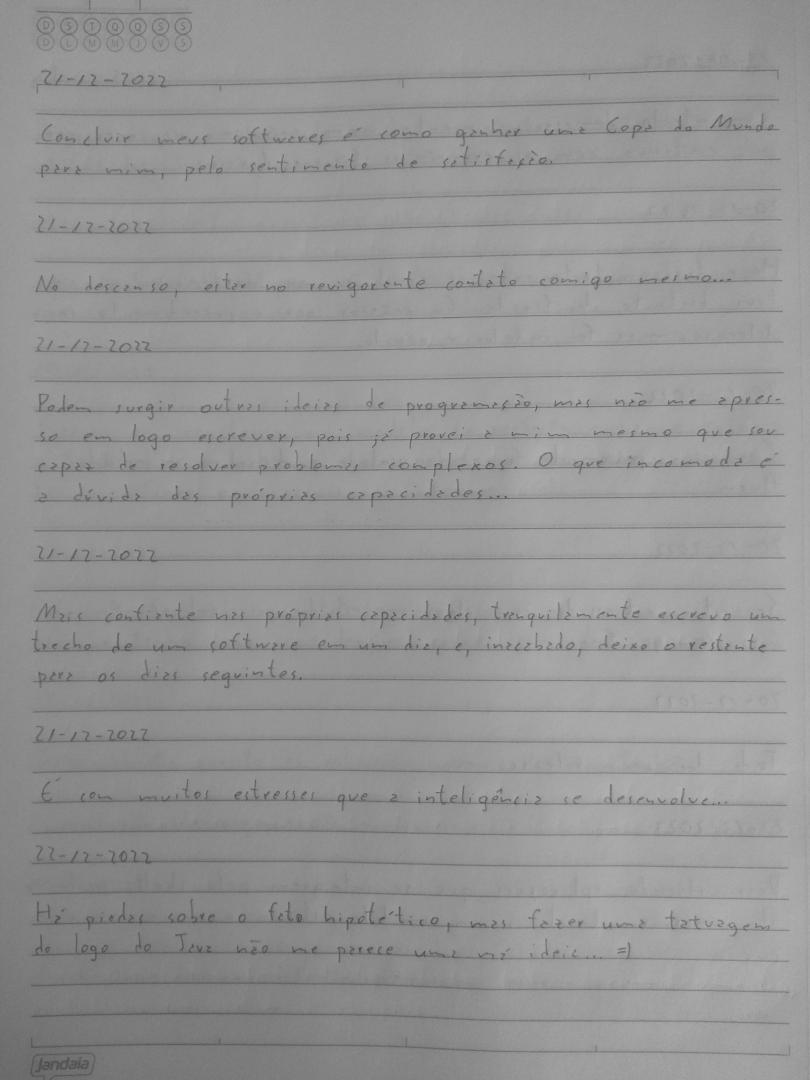 D S T Q Q S S
D L M M J V S
21-12-2022
Concluir meus softwares é como ganhar uma Copa do Mundo
para mim, pelo sentimento de satisfação.
21-12-2022
No descanso, estar no revigorante contato comigo mesmo...
21-12-2022
Podem surgir outras ideias de programação, mas não me apres-
so em logo escrever, pois já provei a mim mesmo que sou
capaz de resolver problemas complexos. O que incomoda é
a dúvida das próprias capacidades...
21-12-2022
Mais confiante nas próprias capacidades, tranquilamente escrevo um
trecho de um software em um dia, e, inacabado, deixo o restante
para os dias seguintes.
21-12-2022
É com muitos estresses que a inteligência se desenvolve...
22-12-2022
Há piadas sobre o fato hipotético, mas fazer uma tatuagem
do logo do Java não me parece uma má ideia... =)
jandaia